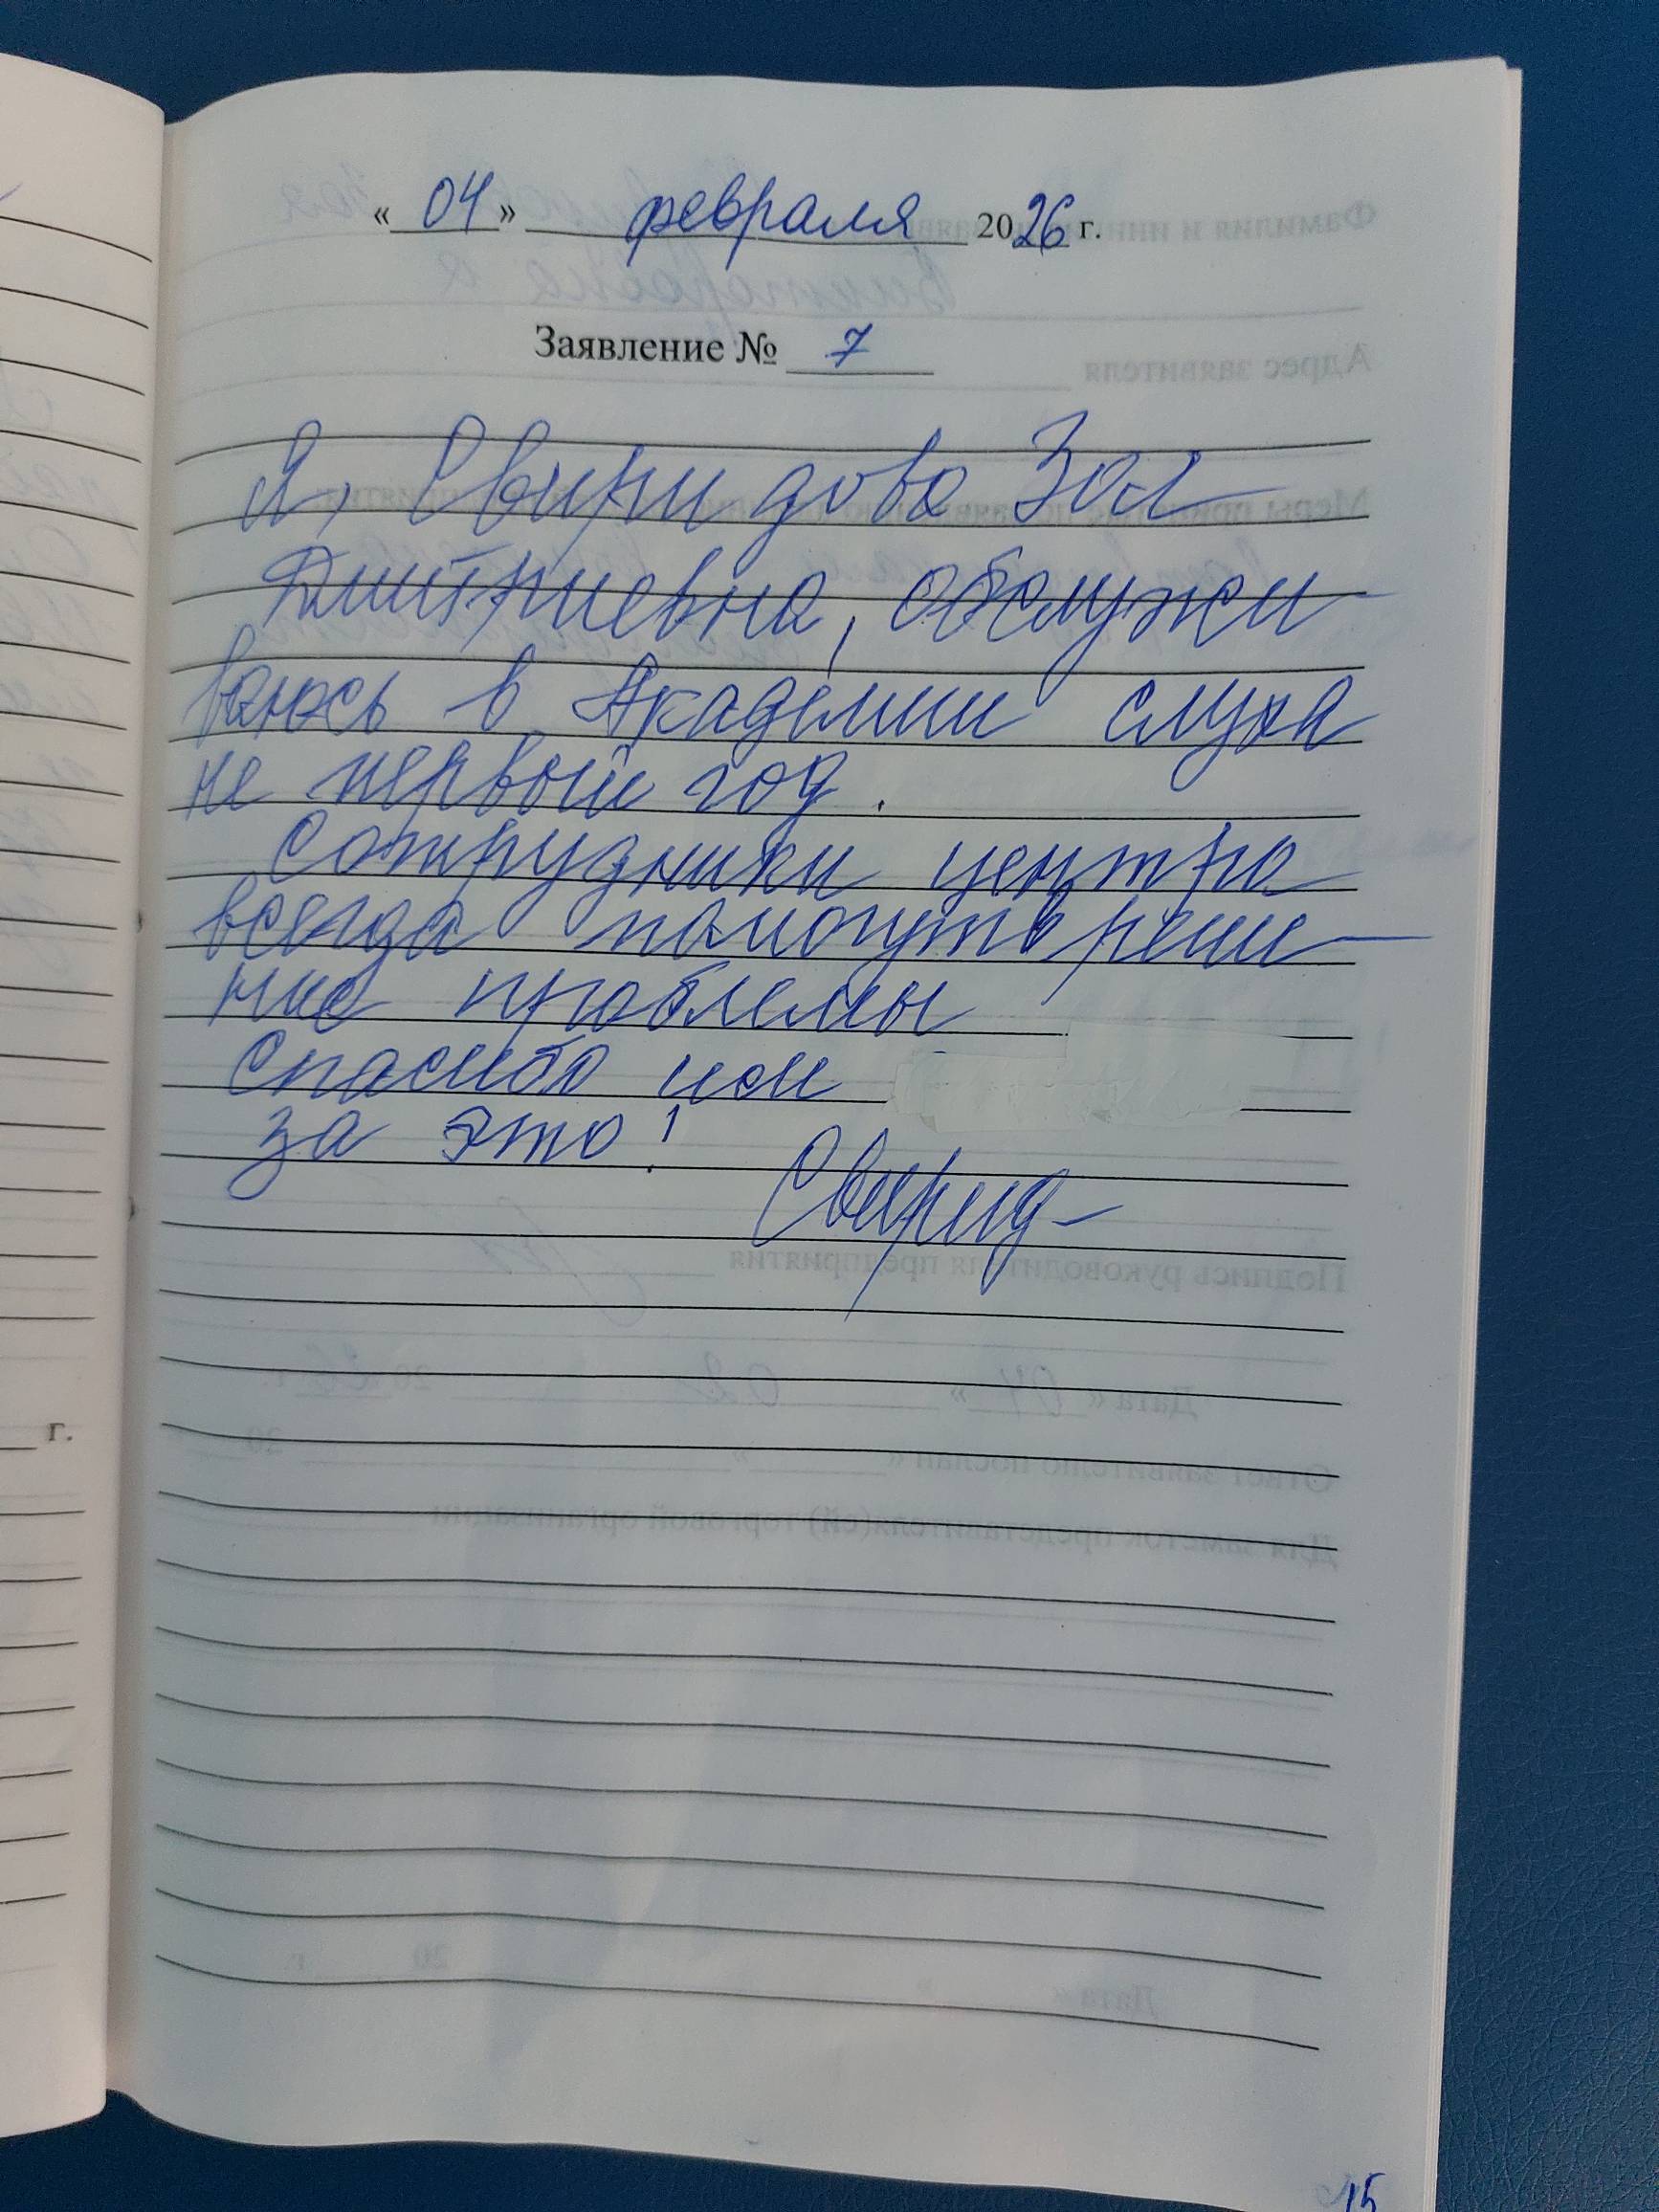 « 04 » февраля 2026 г.
Заявление № 7
Я, Свиридова Зоя
Дмитриевна, обслужи
ваюсь в Академии слуха
не первый год.
Сотрудники центра
всегда помогут в реше
ние проблемы
Спасибо им
за это!
Свирид
г.
15